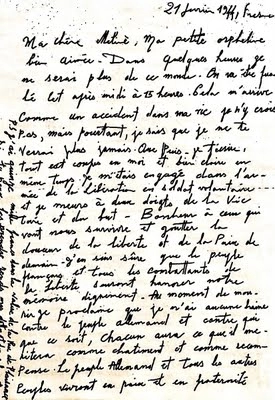 21 février 1944, Fresnes
Ma chère Méliné, Ma petite orpheline
bien aimée. Dans quelques heures je
ne serai plus de ce monde. On va être fusi-
lé cet après midi à 15 heures. Cela m'arrive
comme un accident dans ma vie, je n'y crois
pas, mais pourtant, je sais que je ne te
verrai plus jamais. Que puis-je t'écrire,
tout est confus en moi et bien claire en
même temps. Je m'étais engagé dans l'ar-
mée de la libération en soldat volontaire
et je meurs à deux doigts de la Vic-
toire et du but - Bonheur à ceux qui
vont nous survivre et goutter la
douceur de la liberté et de la Paix de
demain - J'en suis sûre que le peuple
français et tous les combattants de
la liberté sauront honorer notre
mémoire dignement - Au moment de mou-
rir je proclame que je n'ai aucune haine
contre le peuple allemand et contre qui
que ce soit, chacun aura ce qu'il mé-
ritera comme chatiment et comme récom-
pense. Le peuple Allemand et tous les autres
Peuples vivront en paix et en fraternité